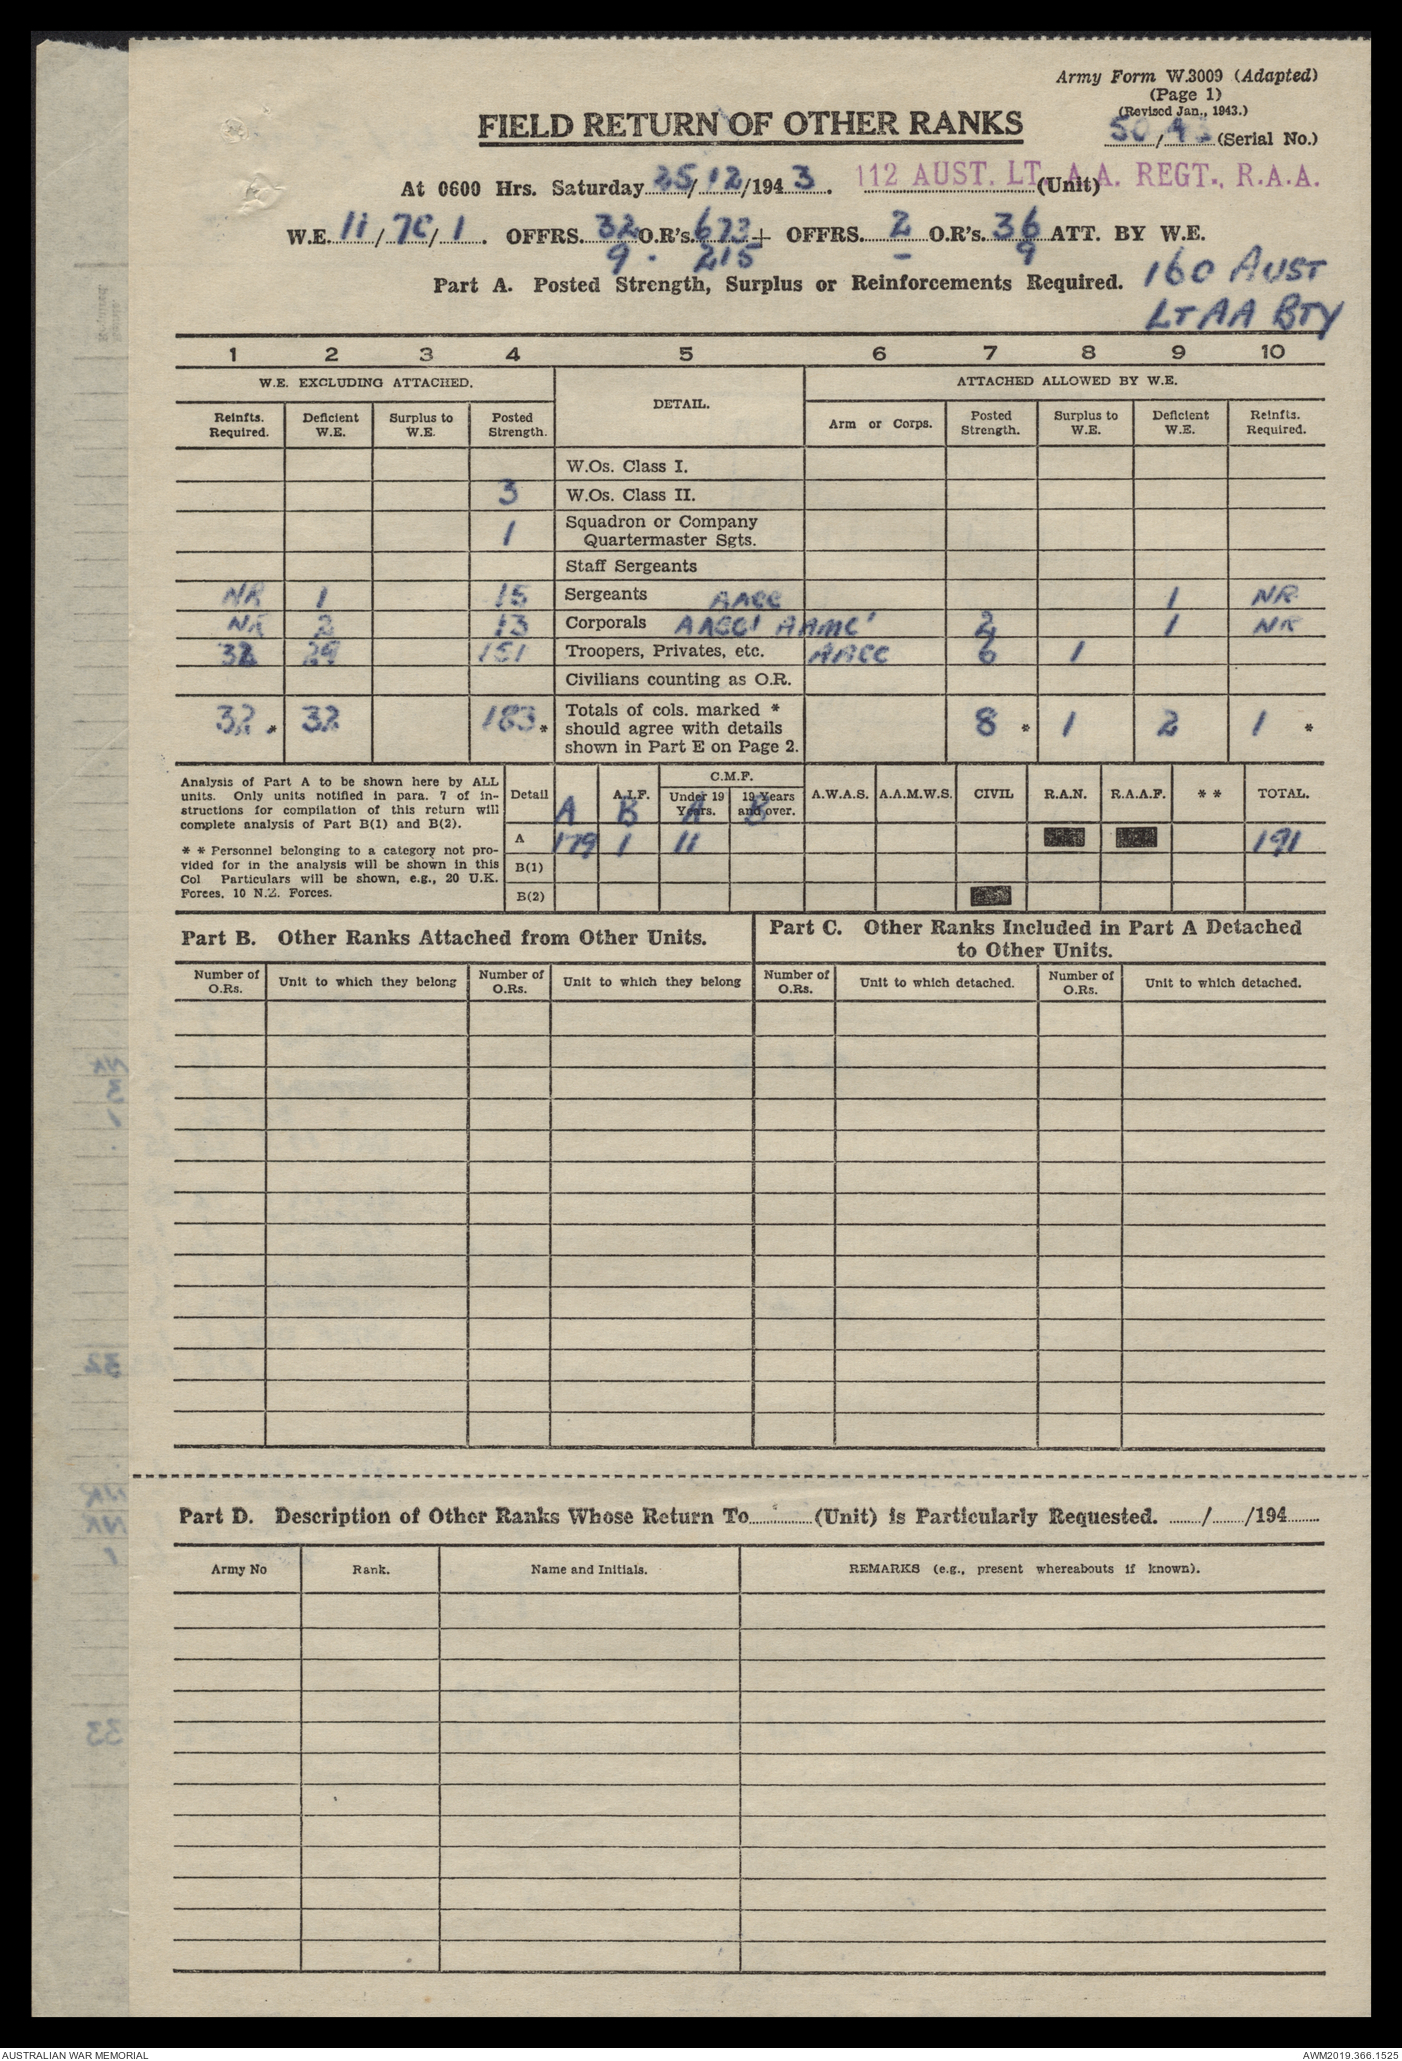 Army Form W.3009 (Adapted)
(Page 1)
(Revised Jan., 1943.)
FIELD RETURN OF OTHER RANKS
50/43 (Serial No.)
At 0600 Hrs. Saturday 25/12/1943. 112 AUST. LT. A.A. REGT., R.A.A. (Unit)
W.E. 11/7C/1. OFFRS. 32 O.R's. 673 + OFFRS. 2 O.R's. 36 ATT. BY W.E.
9. 215 - 9
Part A. Posted Strength, Surplus or Reinforcements Required. 160 AUST
LT AA BTY
1 2 3 4 5 6 7 8 9 10
W.E. EXCLUDING ATTACHED. DETAIL. ATTACHED ALLOWED BY W.E.
Reinfts. Required. Deficient W.E. Surplus to W.E. Posted Strength. Arm or Corps. Posted Strength. Surplus to W.E. Deficient W.E. Reinfts. Required.
W.Os. Class I.
3 W.Os. Class II.
1 Squadron or Company Quartermaster Sgts.
Staff Sergeants
NR 1 15 Sergeants AACC 1 NR
NR 2 13 Corporals AACC1 AAMC1 2 1 NR
32 29 151 Troopers, Privates, etc. AACC 6 1
Civilians counting as O.R.
32 * 32 183 * Totals of cols. marked * should agree with details shown in Part E on Page 2. 8 * 1 2 1 *
Analysis of Part A to be shown here by ALL units. Only units notified in para. 7 of instructions for compilation of this return will complete analysis of Part B(1) and B(2).
* * Personnel belonging to a category not provided for in the analysis will be shown in this Col Particulars will be shown, e.g., 20 U.K. Forces, 10 N.Z. Forces.
C.M.F.
Detail A.I.F. Under 19 Years. 19 Years and over. A.W.A.S. A.A.M.W.S. CIVIL R.A.N. R.A.A.F. * * TOTAL.
A B A B
A 179 1 11 191
B(1)
B(2)
Part B. Other Ranks Attached from Other Units. Part C. Other Ranks Included in Part A Detached to Other Units.
Number of O.Rs. Unit to which they belong Number of O.Rs. Unit to which they belong Number of O.Rs. Unit to which detached. Number of O.Rs. Unit to which detached.
Part D. Description of Other Ranks Whose Return To............(Unit) is Particularly Requested. ....../....../194......
Army No Rank. Name and Initials. REMARKS (e.g., present whereabouts if known).
AUSTRALIAN WAR MEMORIAL AWM2019.366.1525